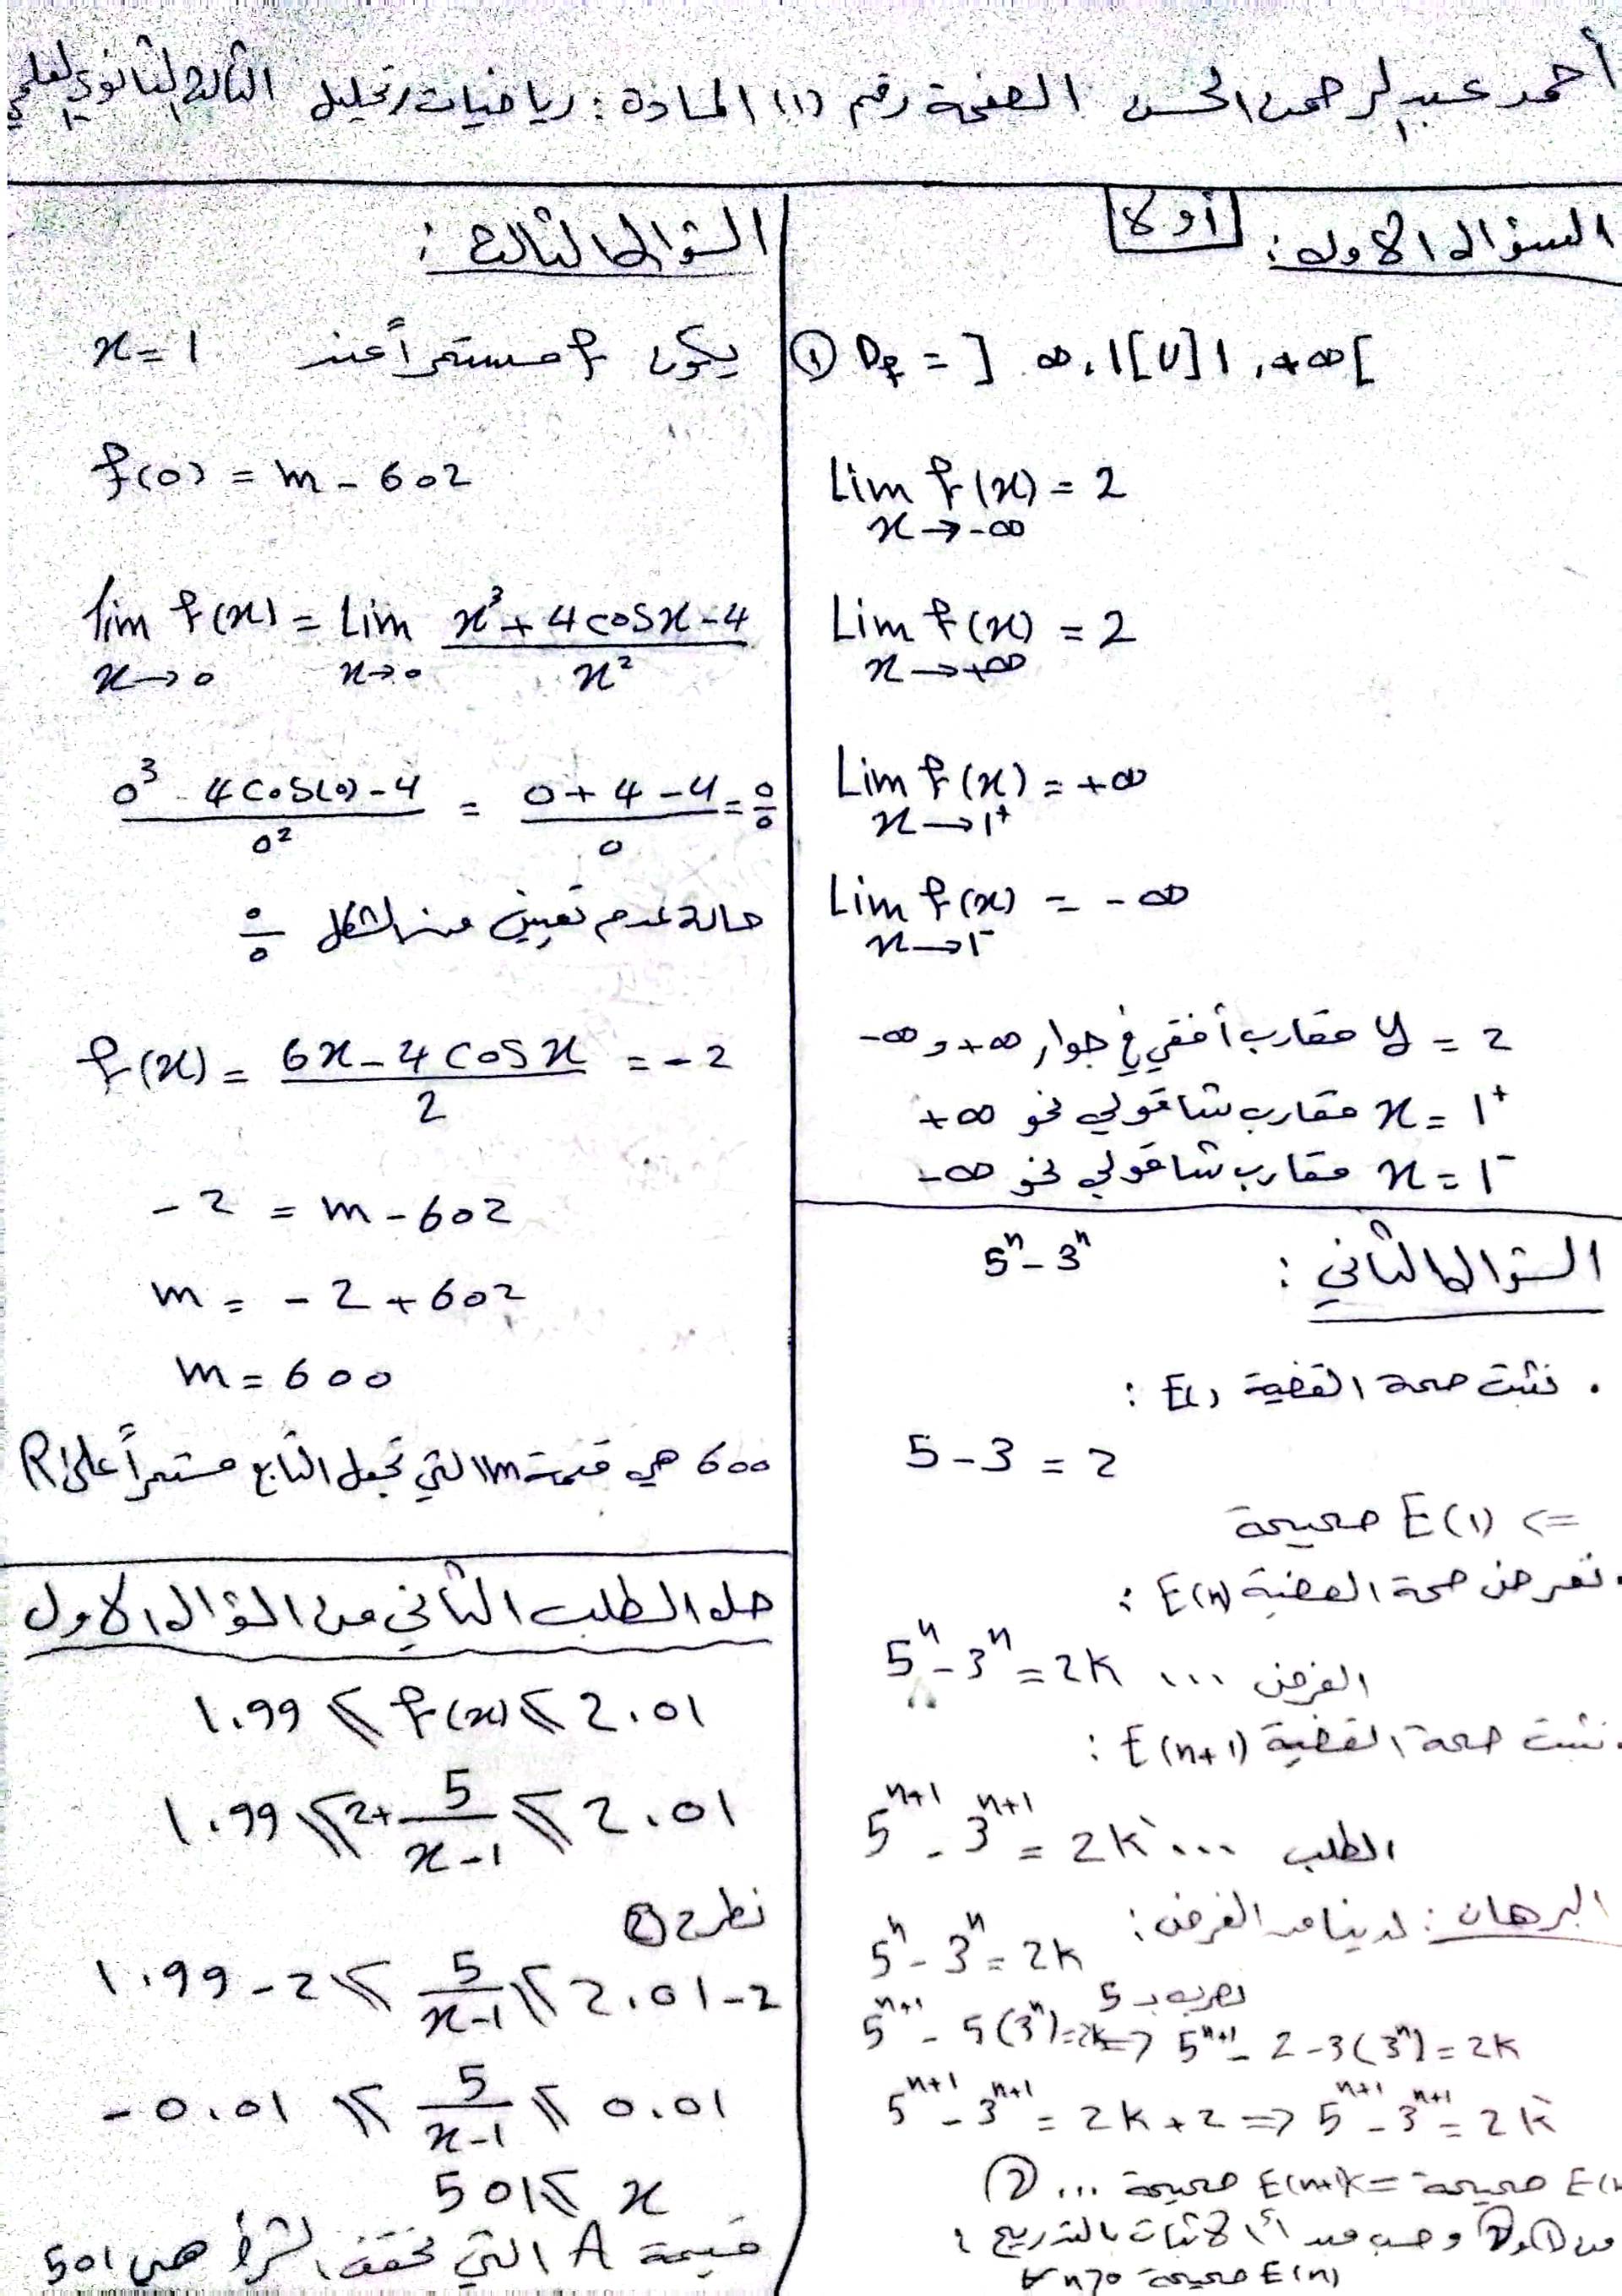 أحمد عبد الرحمن الحسن الصفحة رقم (١) المادة : رياضيات تحليل الثالث الثانوي العلمي
السؤال الاول : أولا
① D_f = ] ∞ , 1[ U ]1 , +∞ [
Lim f(x) = 2
x → -∞
Lim f(x) = 2
x → +∞
Lim f(x) = +∞
x → 1⁺
Lim f(x) = - ∞
x → 1⁻
y = 2 مقارب أفقي في جوار +∞ و -∞
x = 1⁺ مقارب شاقولي نحو +∞
x = 1⁻ مقارب شاقولي نحو -∞
السؤال الثاني : 5ⁿ - 3ⁿ
. نثبت صحة القضية E(1) :
5 - 3 = 2
=> E(1) صحيحة
. نفرض صحة القضية E(n) :
5ⁿ - 3ⁿ = 2k ... الفرض
. نثبت صحة القضية E(n+1) :
5ⁿ⁺¹ - 3ⁿ⁺¹ = 2k` ... الطلب
البرهان : لدينا من الفرض :
5ⁿ - 3ⁿ = 2k
نضرب بـ 5
5ⁿ⁺¹ - 5(3ⁿ) = 2k => 5ⁿ⁺¹ - 2 - 3(3ⁿ) = 2k
5ⁿ⁺¹ - 3ⁿ⁺¹ = 2k + 2 => 5ⁿ⁺¹ - 3ⁿ⁺¹ = 2k`
صحيحة <= E(n+1) صحيحة ... ②
من ① و ② وحسب مبدأ الاثبات بالتدريج :
E(n) صحيحة ∀ n>0
السؤال الثالث :
يكون f مستمراً عند x = 1
f(0) = m - 602
lim f(x) = Lim (x³ + 4cosx - 4) / x²
x → 0 x → 0
(0³ - 4cos(0) - 4) / 0² = (0 + 4 - 4) / 0 = 0/0
حالة عدم تعيين من الشكل 0/0
f(x) = (6x - 4cosx) / 2 = - 2
- 2 = m - 602
m = - 2 + 602
m = 600
600 هي قيمة m التي تجعل التابع مستمراً على R
حل الطلب الثاني من السؤال الاول
1.99 ⩽ f(x) ⩽ 2.01
1.99 ⩽ 2 + 5/(x-1) ⩽ 2.01
نطرح ②
1.99 - 2 ⩽ 5/(x-1) ⩽ 2.01 - 2
- 0.01 ⩽ 5/(x-1) ⩽ 0.01
501 ⩽ x
قيمة A التي تحقق الشرط هي 501